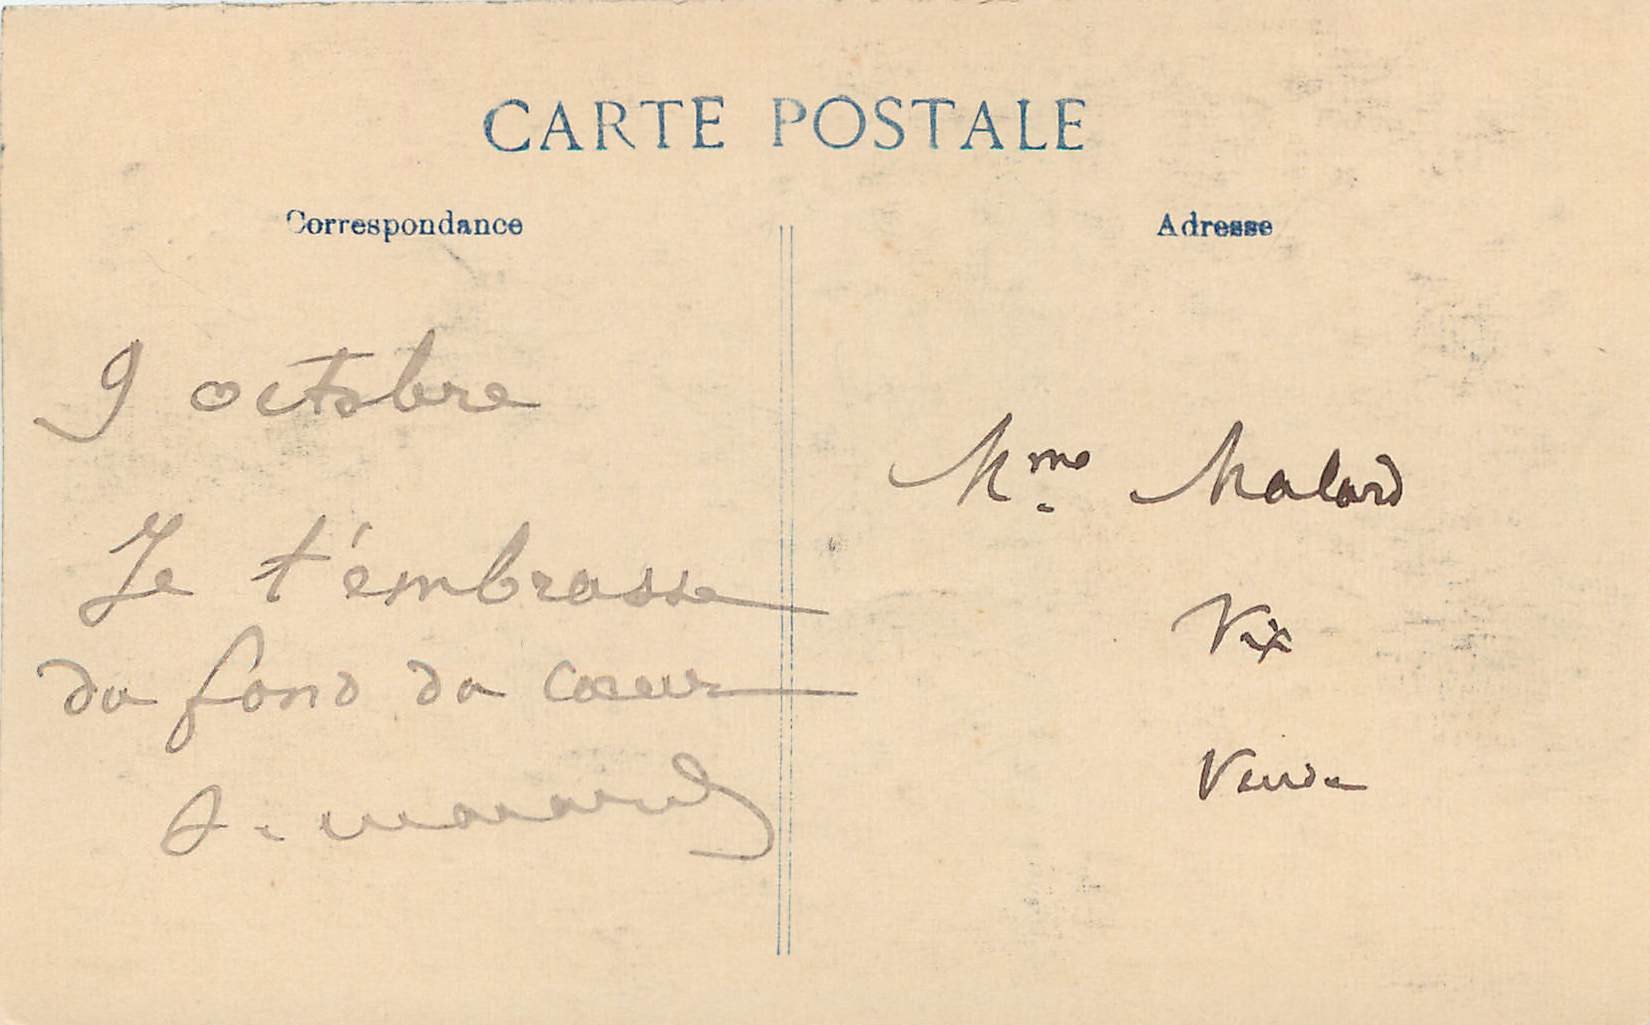 CARTE POSTALE
Correspondance
Adresse
9 octobre
Je t'émbrasse
du fond du coeur
Mme Malard
Vix
Vendée